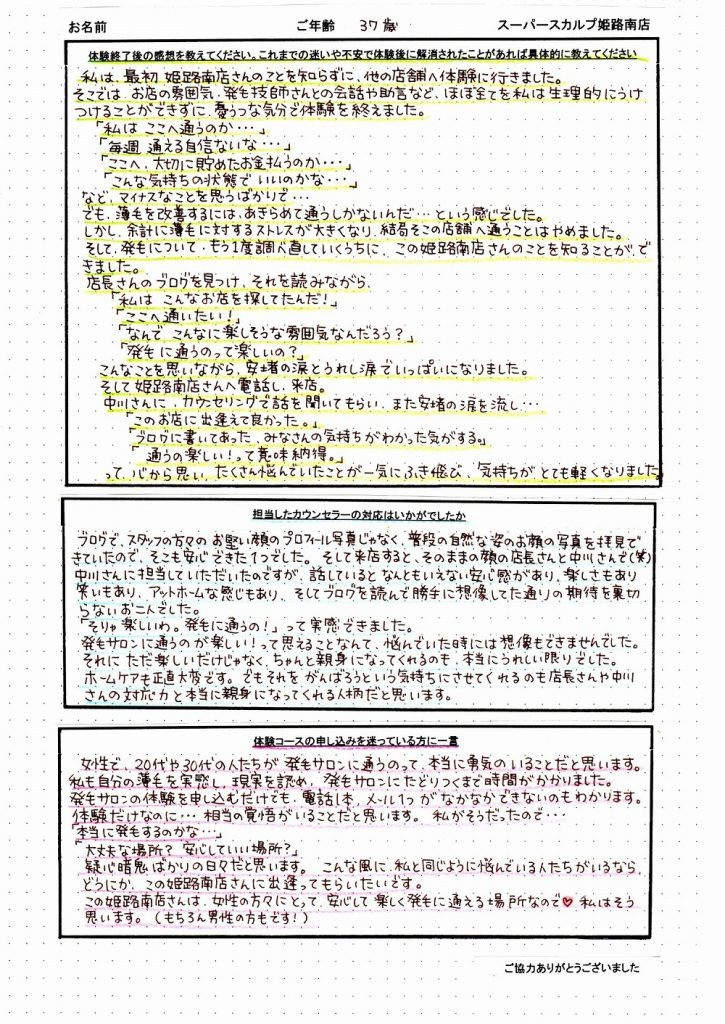 お名前　ご年齢　37歳　スーパースカルプ姫路南店
体験終了後の感想を教えてください。これまでの迷いや不安で体験後に解消されたことがあれば具体的に教えてください
私は、最初 姫路南店さんのことを知らずに、他の店舗へ体験に行きました。
そこでは、お店の雰囲気・発毛技師さんとの会話や助言など、ほぼ全てを私は生理的にうけ
つけることができずに、憂うつな気分で体験を終えました。
「私は ここへ通うのか・・・」
「毎週 通える自信ないな・・・」
「ここへ、大切に貯めたお金払うのか・・・」
「こんな気持ちの状態で いいのかな・・・」
など、マイナスなことを思うばかりで・・・
でも、薄毛を改善するには、あきらめて通うしかないんだ・・・という感じでした。
しかし、余計に薄毛に対するストレスが大きくなり、結局そこの店舗へ通うことはやめました。
そして、発毛について、もう1度調べ直していくうちに、この姫路南店さんのことを知ることが、で
きました。
店長さんのブログを見つけ、それを読みながら、
「私は こんなお店を探してたんだ！」
「ここへ通いたい！」
「なんで こんなに楽しそうな雰囲気なんだろう？」
「発毛に通うのって楽しいの？」
こんなことを思いながら、安堵の涙とうれし涙でいっぱいになりました。
そして姫路南店さんへ電話し、来店。
中川さんに、カウンセリングで話を聞いてもらい、また安堵の涙を流し・・・
「このお店に出逢えて良かった。」
「ブログに書いてあった、みなさんの気持ちがわかった気がする。」
「通うの楽しい！って意味納得。」
って、心から思い、たくさん悩んでいたことが一気にふき飛び、気持ちがとても軽くなりました。
担当したカウンセラーの対応はいかがでしたか
ブログで、スタッフの方々のお堅い顔のプロフィール写真じゃなく、普段の自然な姿のお顔の写真を拝見で
きていたので、そこも安心できた1つでした。そして来店すると、そのままの顔の店長さんと中川さんで(笑)
中川さんに担当していただいたのですが、話しているとなんともいえない安心感があり、楽しさもあり
笑いもあり、アットホームな感じもあり、そしてブログを読んで勝手に想像してた通りの期待を裏切
らないお二人でした。
「そりゃ楽しいわ。発毛に通うの！」って実感できました。
発毛サロンに通うのが楽しい！って思えることなんて、悩んでいた時には想像もできませんでした。
それに ただ楽しいだけじゃなく、ちゃんと親身になってくれるのも、本当にうれしい限りでした。
ホームケアも正直大変です。でもそれをがんばろうという気持ちにさせてくれるのも店長さんや中川
さんの対応力と本当に親身になってくれる人柄だと思います。
体験コースの申し込みを迷っている方に一言
女性で、20代や30代の人たちが発毛サロンに通うのって、本当に勇気のいることだと思います。
私も自分の薄毛を実感し、現実を認め、発毛サロンにたどりつくまで時間がかかりました。
発毛サロンの体験を申し込むだけでも、電話1本、メール1つがなかなかできないのもわかります。
体験だけなのに・・・相当の覚悟がいることだと思います。私がそうだったので・・・
「本当に発毛するのかな・・・」
「大丈夫な場所？安心していい場所？」
疑心暗鬼ばかりの日々だと思います。こんな風に、私と同じように悩んでいる人たちがいるなら、
どうにか、この姫路南店さんに出逢ってもらいたいです。
この姫路南店さんは、女性の方々にとって、安心して楽しく発毛に通える場所なので♥ 私はそう
思います。（もちろん男性の方もです！）
ご協力ありがとうございました